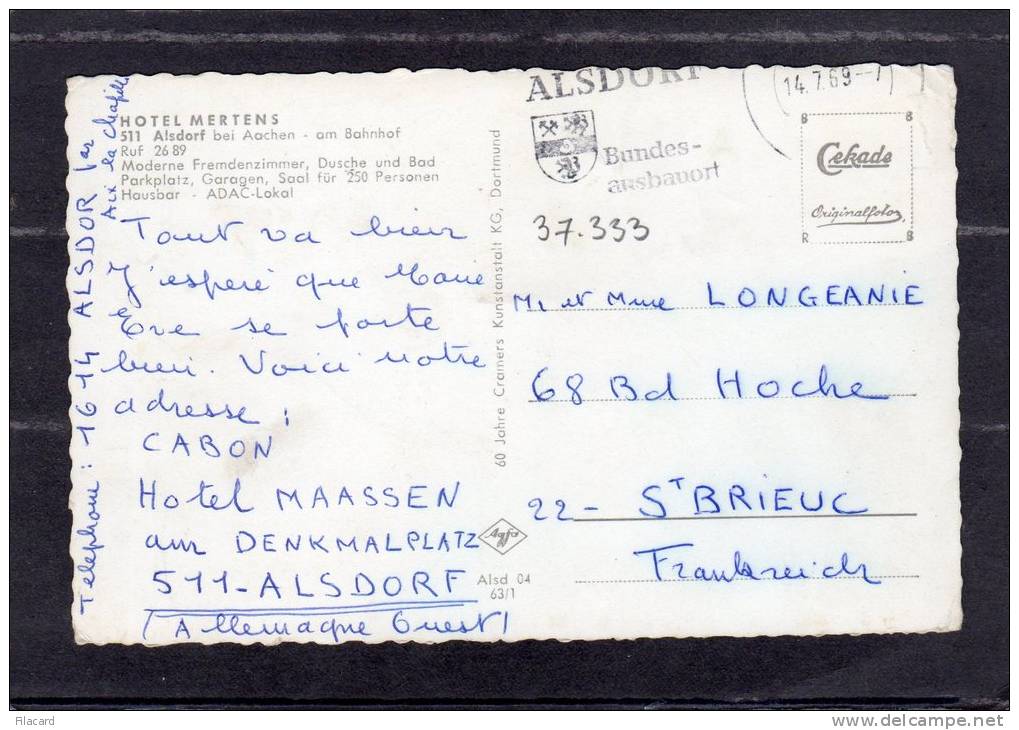 HOTEL MERTENS
511 Alsdorf bei Aachen - am Bahnhof
Ruf 26 89
Moderne Fremdenzimmer, Dusche und Bad
Parkplatz, Garagen, Saal für 250 Personen
Hausbar - ADAC-Lokal
Tout va bien
J'espère que Marie
Eve se porte
bien. Voici notre
adresse :
CABON
Hotel MAASSEN
am DENKMALPLATZ
511-ALSDORF
(Allemagne Ouest)
Telephone : 16 14 ALSDOR par
Aix la Chapelle
60 Jahre Cramers Kunstanstalt KG, Dortmund
Agfa
Alsd 04
63/1
ALSDORF
Bundes-
ausbauort
14.7.69--7
37.333
B B
Cekade
Originalfotos
R B
Mr et Mme LONGEANIE
68 Bd Hoche
22- ST BRIEUC
Frankreich
Filacard
www.delcampe.net